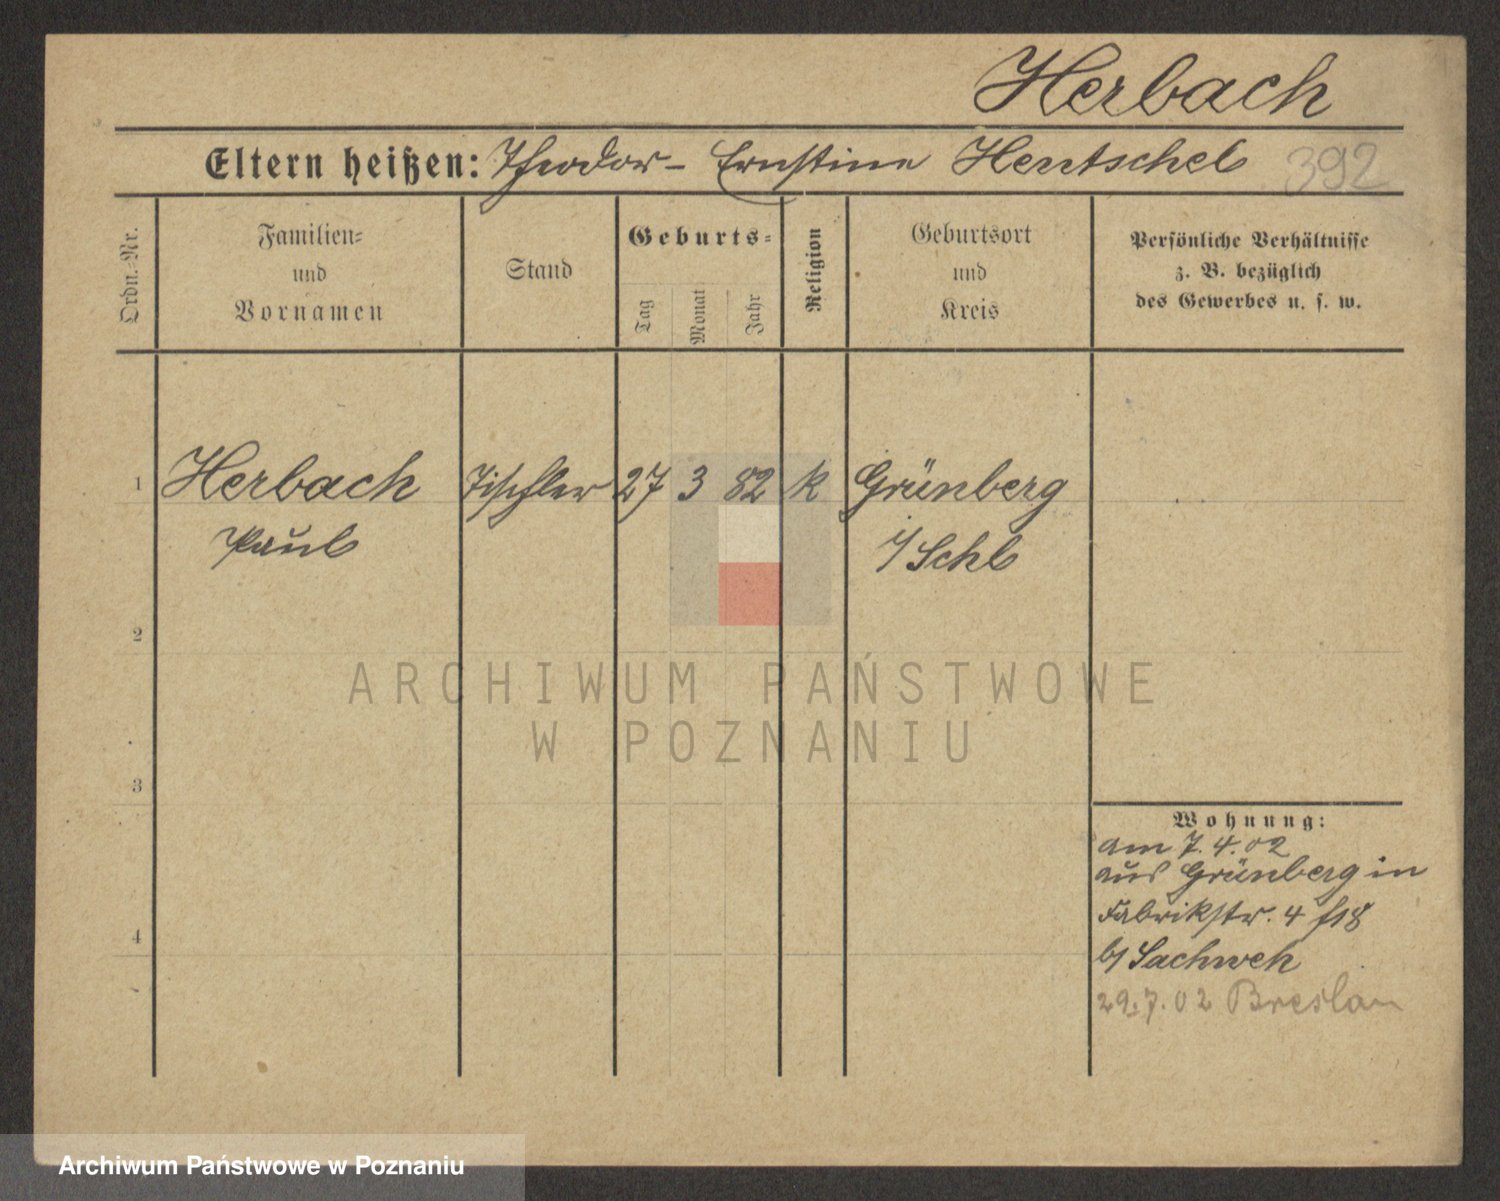 Herbach
Eltern heißen: Theodor - Ernstine Hentschel 392
Ordn.-Nr.
Familien-
und
Vornamen
Stand
Geburts-
Tag
Monat
Jahr
Religion
Geburtsort
und
Kreis
Persönliche Verhältnisse
z. B. bezüglich
des Gewerbes u. s. w.
1 Herbach Tischler 27 3 82 k Grünberg
Paul i/Schl
2
3
4
Wohnung:
am 7.4.02
aus Grünberg in
Fabrikstr. 4
b/ Sachweh
29.7.02 Breslau
ARCHIWUM PAŃSTWOWE
W POZNANIU
Archiwum Państwowe w Poznaniu